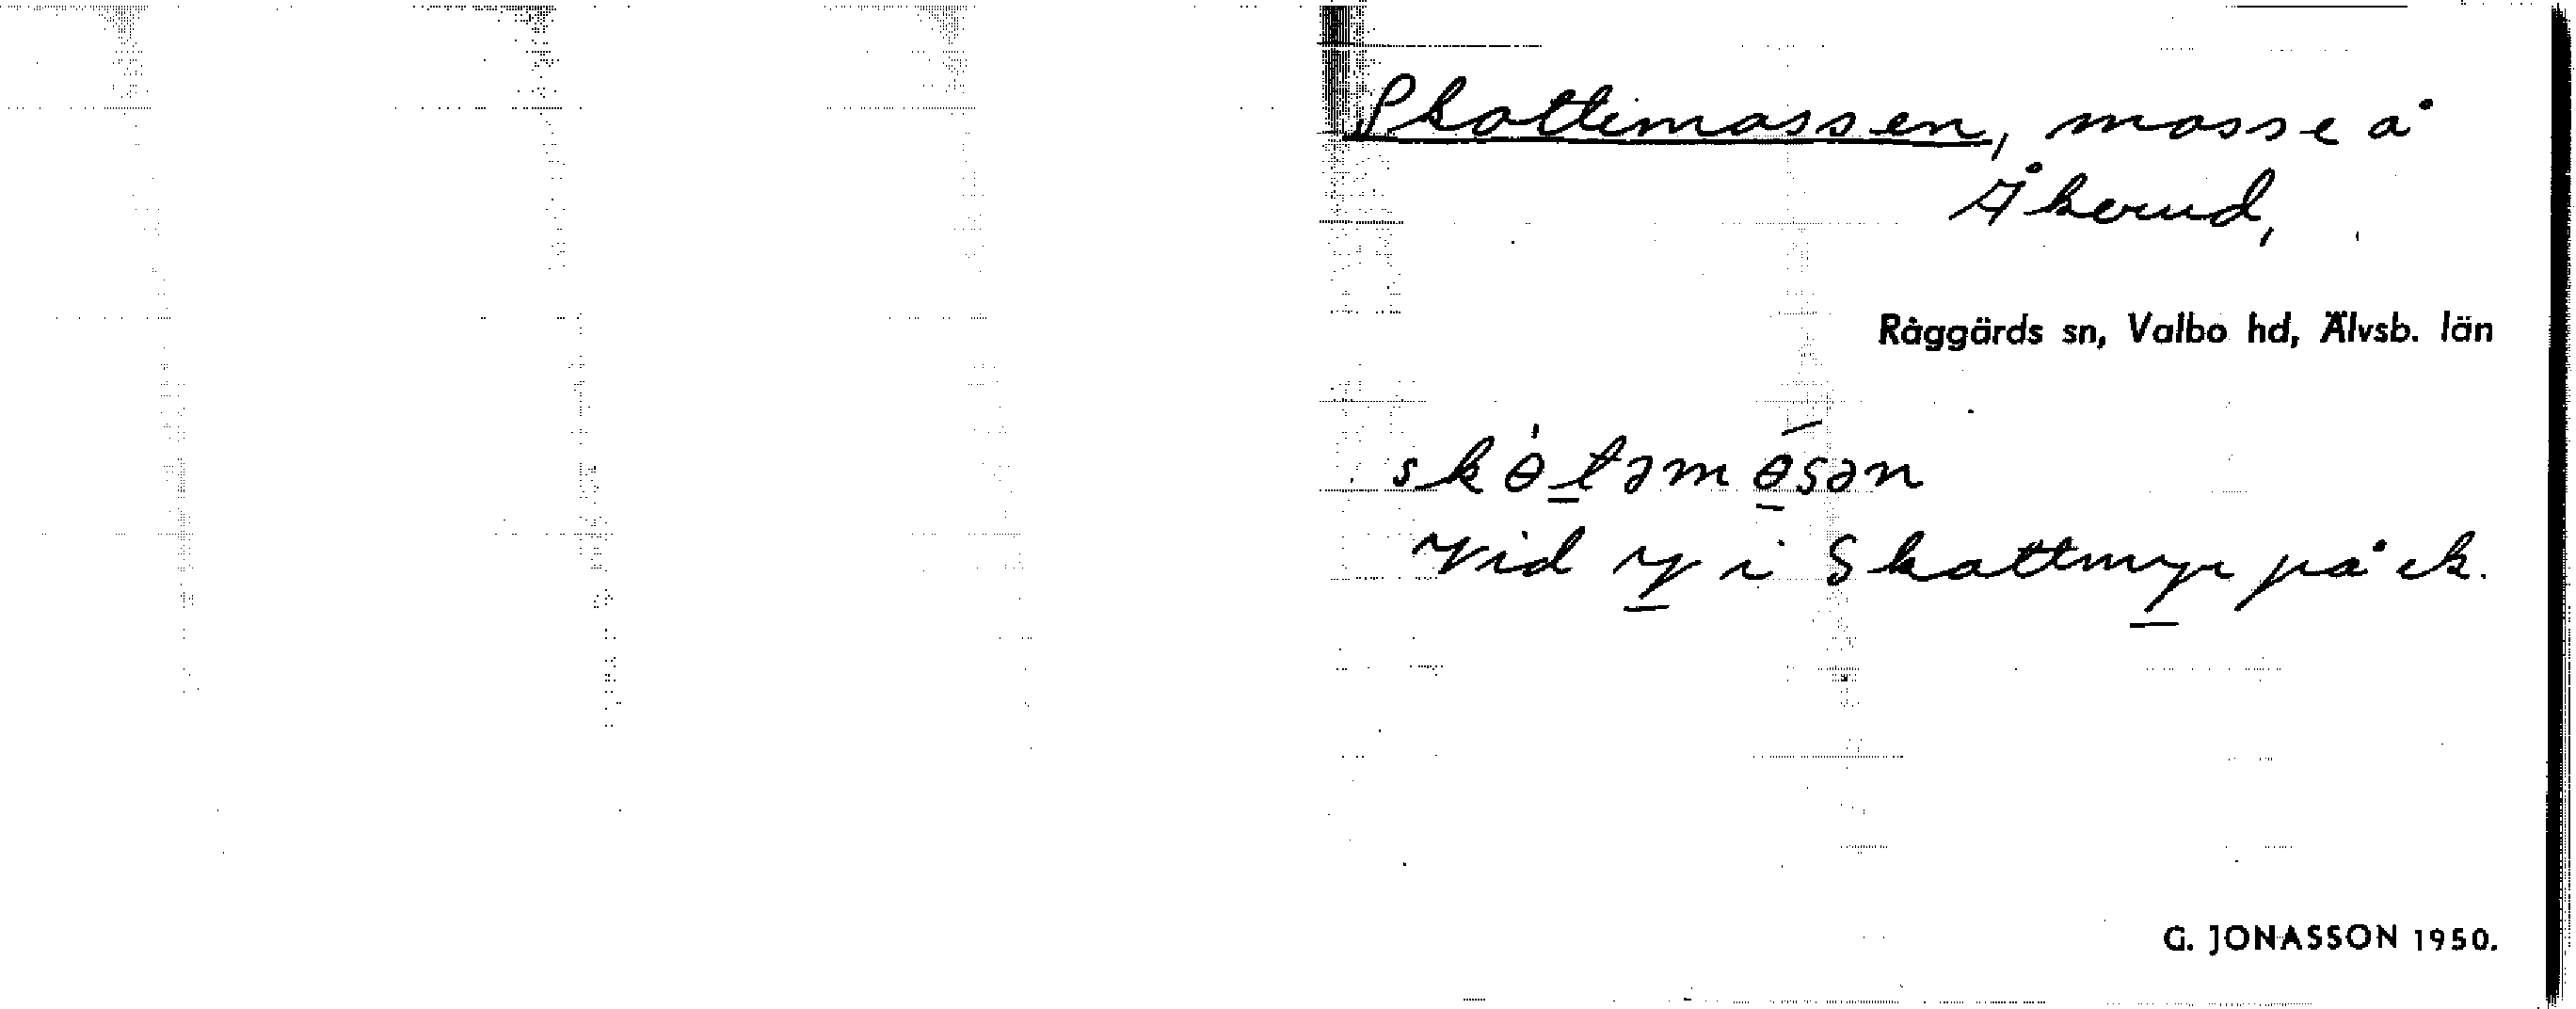 Skottemossen, mosse å
Åkerud,
Råggärds sn, Valbo hd, Älvsb. län
skɵ̀təmɵ́sən
Vid y i Skattmyr på ek.
G. JONASSON 1950.